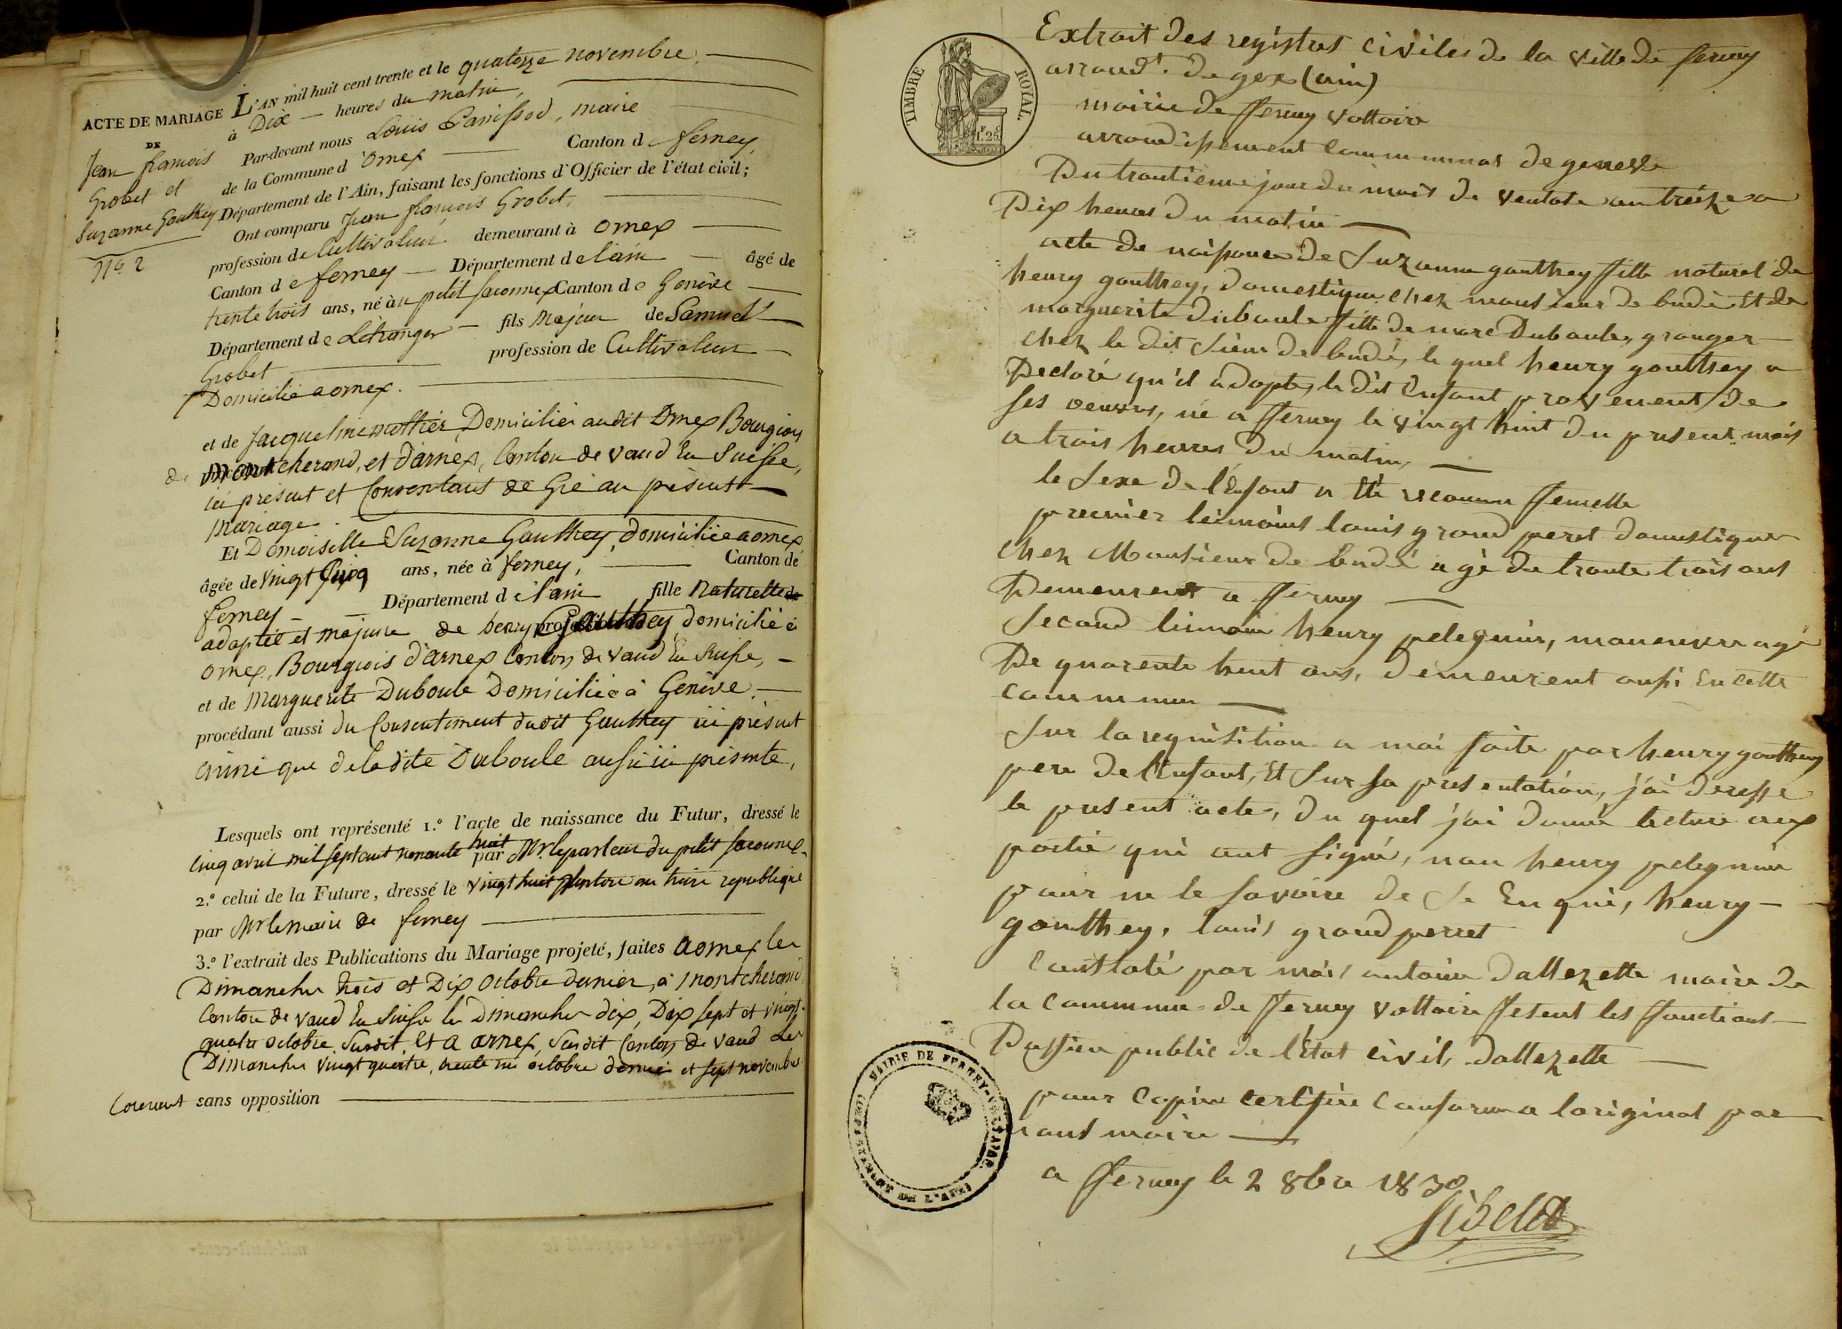 ACTE DE MARIAGE
DE
Jean françois
Grobet et
Suzanne Gauthey
N° 2
L'AN mil huit cent trente et le quatorze novembre,
à Dix heures du matin,
Par-devant nous Louis Panissod, maire
de la Commune d'Ornex Canton de ferney,
Département de l'Ain, faisant les fonctions d'Officier de l'état civil;
Ont comparu Jean françois Grobet,
profession de Cultivateur demeurant à ornex
Canton de ferney Département de l'ain âgé de
trente trois ans, né au petit saconnex Canton de Genève
Département de L'étranger fils Majeur de Samuel
Grobet profession de Cultivateur
Domicilié a ornex.
et de Jacqueline mathier, Domiciliés audit Ornex Bourgeois
de Montcherand, et d'arnex, Canton de vaud En Suisse,
ici présent et Consentans de Gré au présent
Mariage.
Et Demoiselle Suzanne Gauthey, domiciliée a ornex
âgée de vingt Cinq ans, née à ferney, Canton de
ferney Département de l'ain fille Naturelle
adoptée et majeure de henry Gauthey, domicilié à
ornex, Bourgeois d'arnex Canton de vaud En Suisse,
et de Marguerite Duboule Domiciliée à Genève.
procédant aussi du Consentement dudit Gauthey ici présent
ainsi que de la dite Duboule aussi ici présente,
Lesquels ont représenté 1.° l'acte de naissance du Futur, dressé le
cinq avril mil sept cent nonante huit par Mr le pasteur du petit saconnex.
2.° celui de la Future, dressé le vingt huit ventose an treize republique
par Mr le maire de ferney
3.° l'extrait des Publications du Mariage projeté, faites a ornex les
Dimanches trois et Dix octobre dernier, à montcherand
Canton de vaud En Suisse les Dimanches dix, Dix sept et vingt
quatre octobre susdit, Et a arnex, susdit Canton de vaud Les
Dimanches vingt quatre, trente un octobre dernier et sept novembre
Courrent sans opposition
TIMBRE ROYAL
1.25
Extrait des registres civiles de la ville de ferney
arrond.t de gex (ain)
mairie de fferney voltaire
arrondissement communnal de geneve
Du trantieme jour du mois de ventose an treize a
Dix heures du matin
acte de naissance de Suzanne gauthey ffille naturel de
henry gauthey, domestique chez monsieur de budé Et de
marguerite duboule ffille de marc Duboule, granger
chez le dit sieur de budé, le quel henry gauthey a
Declaré qu'il adopte, le dit Enfant provenent de
ses oeuvres, né a fferney le vingt huit du present mois
a trois heures du matin,
le sexe de l'Enfant a Eté reconnu ffemelle
premier témoins louis grand perret domestique
chez Monsieur de budé agé de trante trois ans
Demeurent a fferney
second témoin henry pelegnin, maneuvre agé
De quarente huit ans, demeurent aussi En cette
commune
sur la requisition a moi faite par henry gauthey
pere de l'Enfant, Et sur sa présentation, j'ai dresse
le present acte, du quel j'ai donné lecture aux
partie qui ont signé, non henry pelegnin
pour ne le savoire de Enquis, henry
gauthey, louis grand perret
Constaté par moi, antoine dallezette maire de
la commune de fferney voltaire ffesent les ffonctions
D'officier public de l'Etat civil, dallezette
pour Copie certifiée Conforme a l'original par
nous maire
a fferney le 2 8bre 1830
MAIRIE DE FERNEY-VOLTAIRE
DE L'AIN